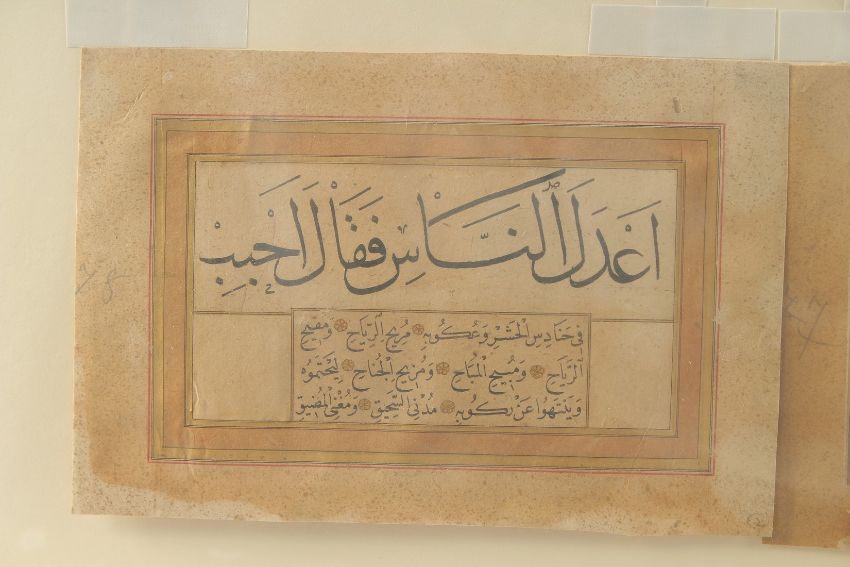 اَعْدَلَ النَّاسِ فَقَالَ اَحْبِبْ
فِي حَنَادِسِ الْحَشْرِ وَعُكُوبِهِ مُرِيحِ الرِّيَاحِ وَمُفِيحِ
الرَّيَاحِ وَمُبِيحِ الْمُبَاحِ وَمُزِيحِ الْجُنَاحِ لِيَحْتَمُوهُ
وَيَنْتَهُوا عَنْ رُكُوبِهِ مُدْنِي السَّحِيقِ وَمُغْنِي الْمُضِيقِ